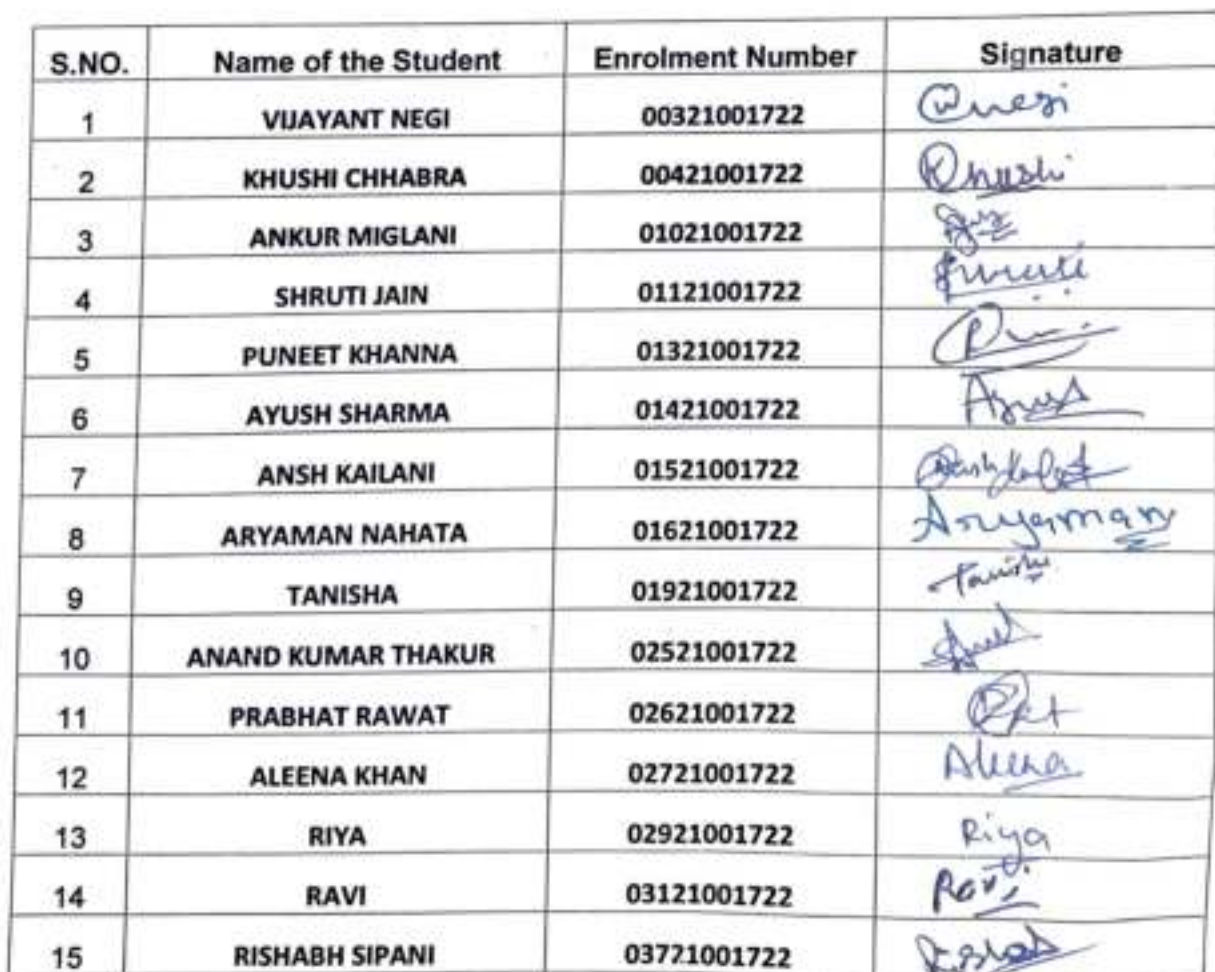 S.NO. Name of the Student Enrolment Number Signature
1 VIJAYANT NEGI 00321001722 Negi
2 KHUSHI CHHABRA 00421001722 Khushi
3 ANKUR MIGLANI 01021001722
4 SHRUTI JAIN 01121001722 Shruti
5 PUNEET KHANNA 01321001722
6 AYUSH SHARMA 01421001722 Ayush
7 ANSH KAILANI 01521001722
8 ARYAMAN NAHATA 01621001722 Aryaman
9 TANISHA 01921001722 Tanisha
10 ANAND KUMAR THAKUR 02521001722
11 PRABHAT RAWAT 02621001722
12 ALEENA KHAN 02721001722 Aleena
13 RIYA 02921001722 Riya
14 RAVI 03121001722 Ravi
15 RISHABH SIPANI 03721001722